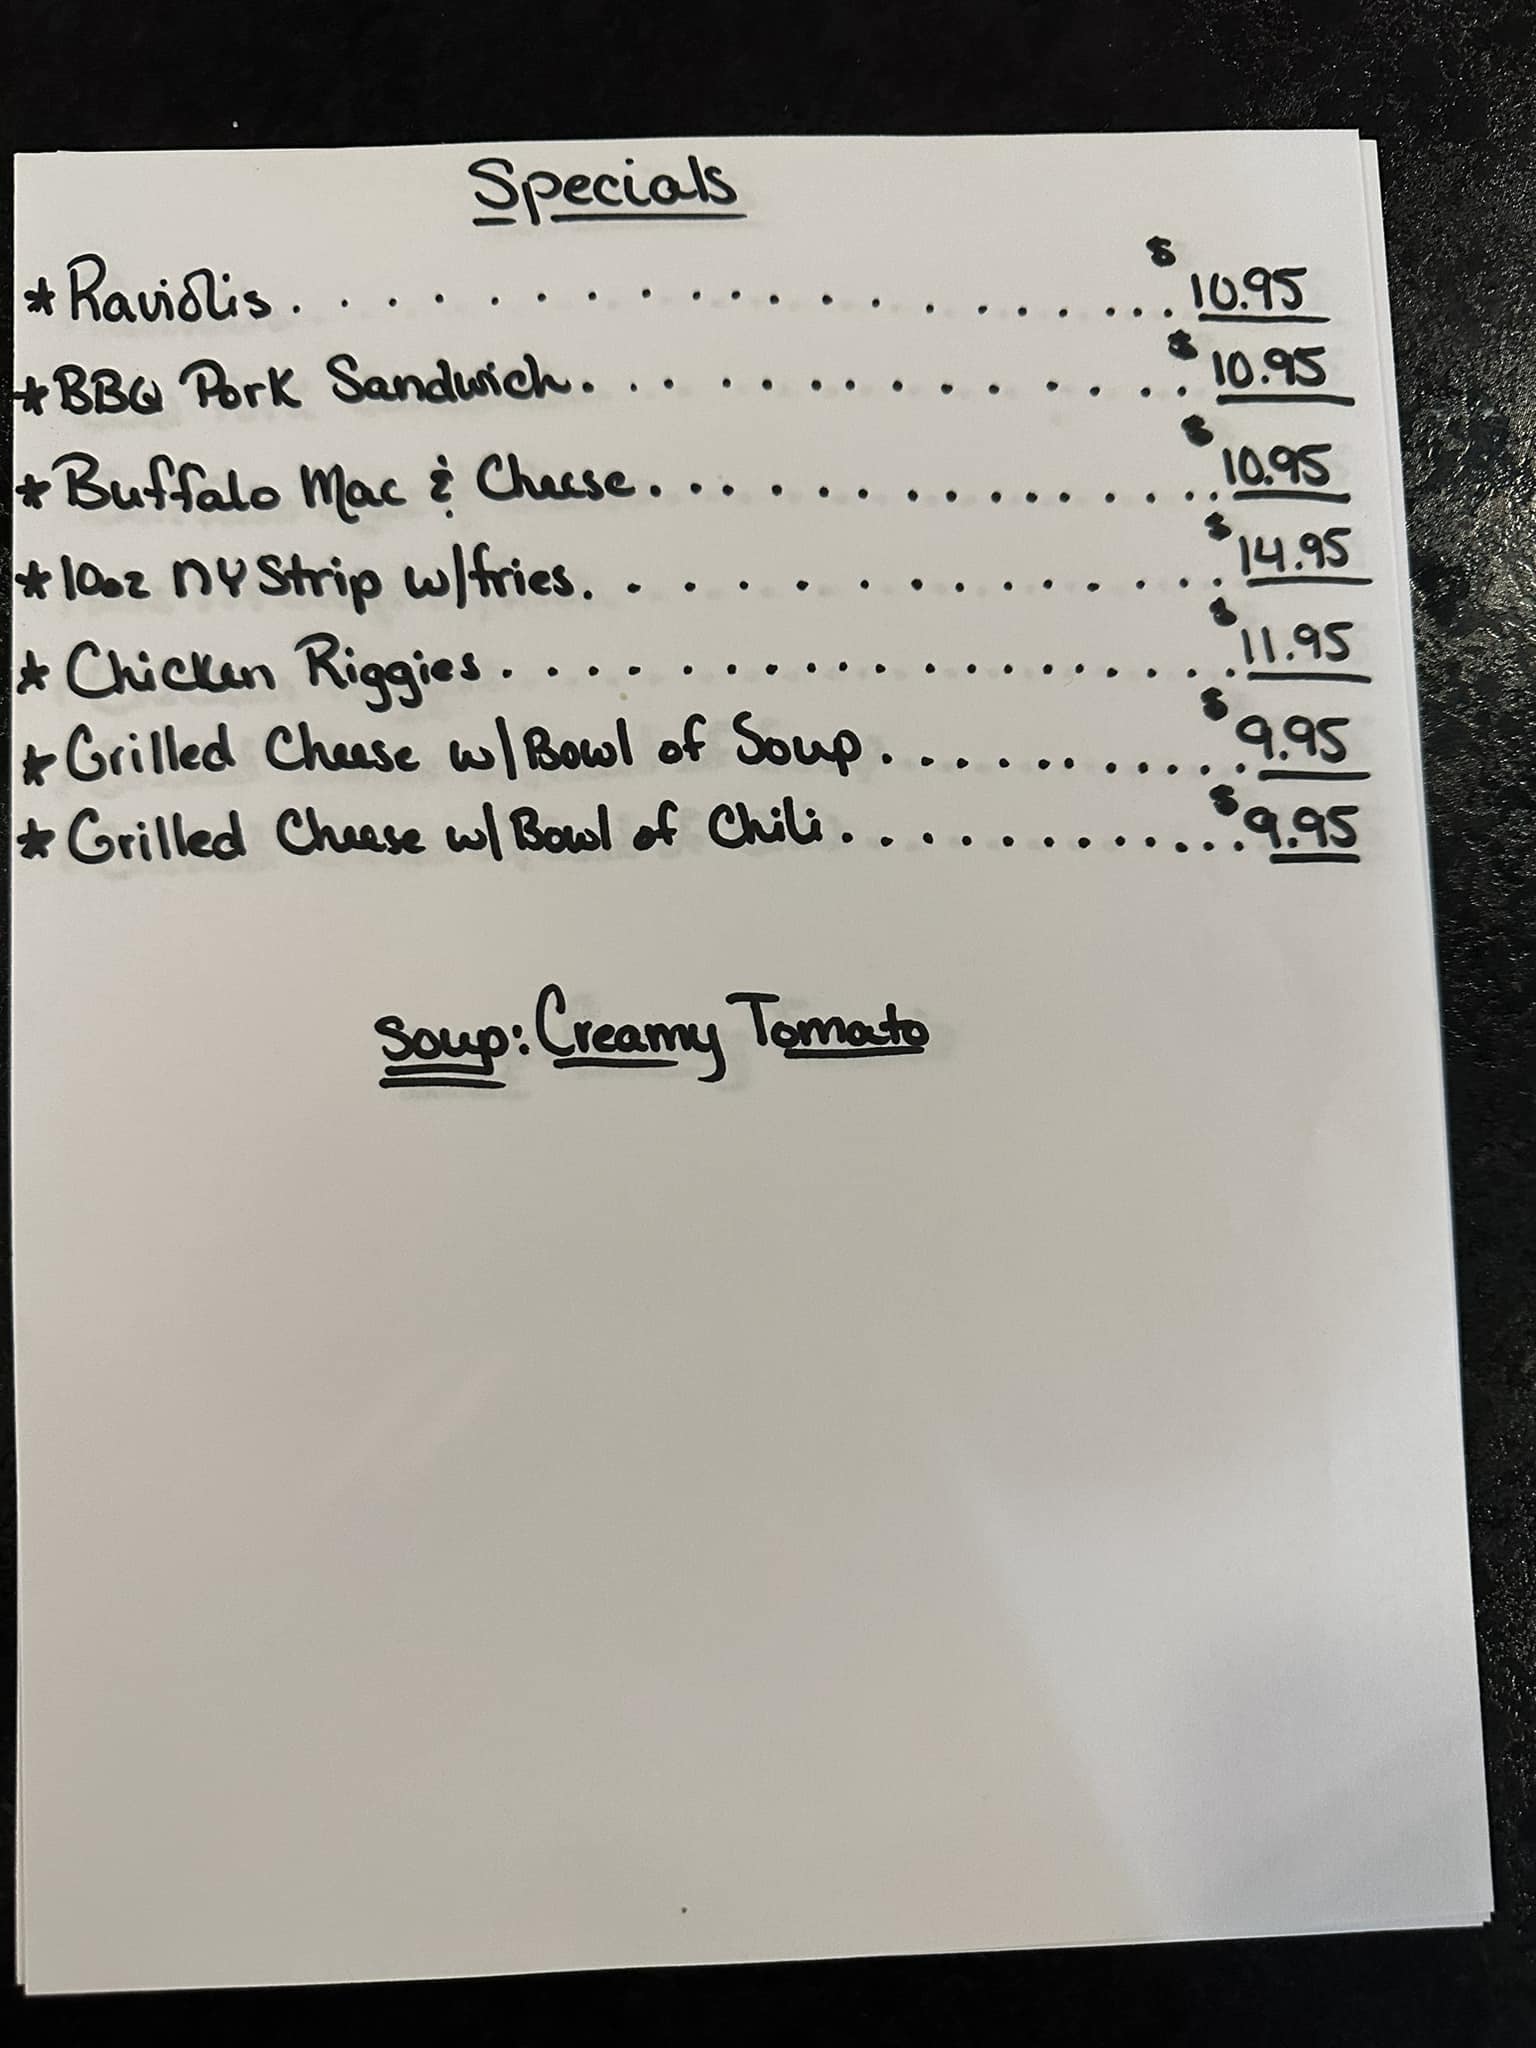 Specials
* Raviolis. . . . . . . . . . . . . . . . . . . . $10.95
* BBQ Pork Sandwich. . . . . . . . . . . . . . . $10.95
* Buffalo Mac & Cheese. . . . . . . . . . . . . . $10.95
* 10oz NY Strip w/fries. . . . . . . . . . . . . . $14.95
* Chicken Riggies. . . . . . . . . . . . . . . . . . $11.95
* Grilled Cheese w/Bowl of Soup. . . . . . . . . . . . $9.95
* Grilled Cheese w/Bowl of Chili. . . . . . . . . . . . . $9.95
Soup: Creamy Tomato